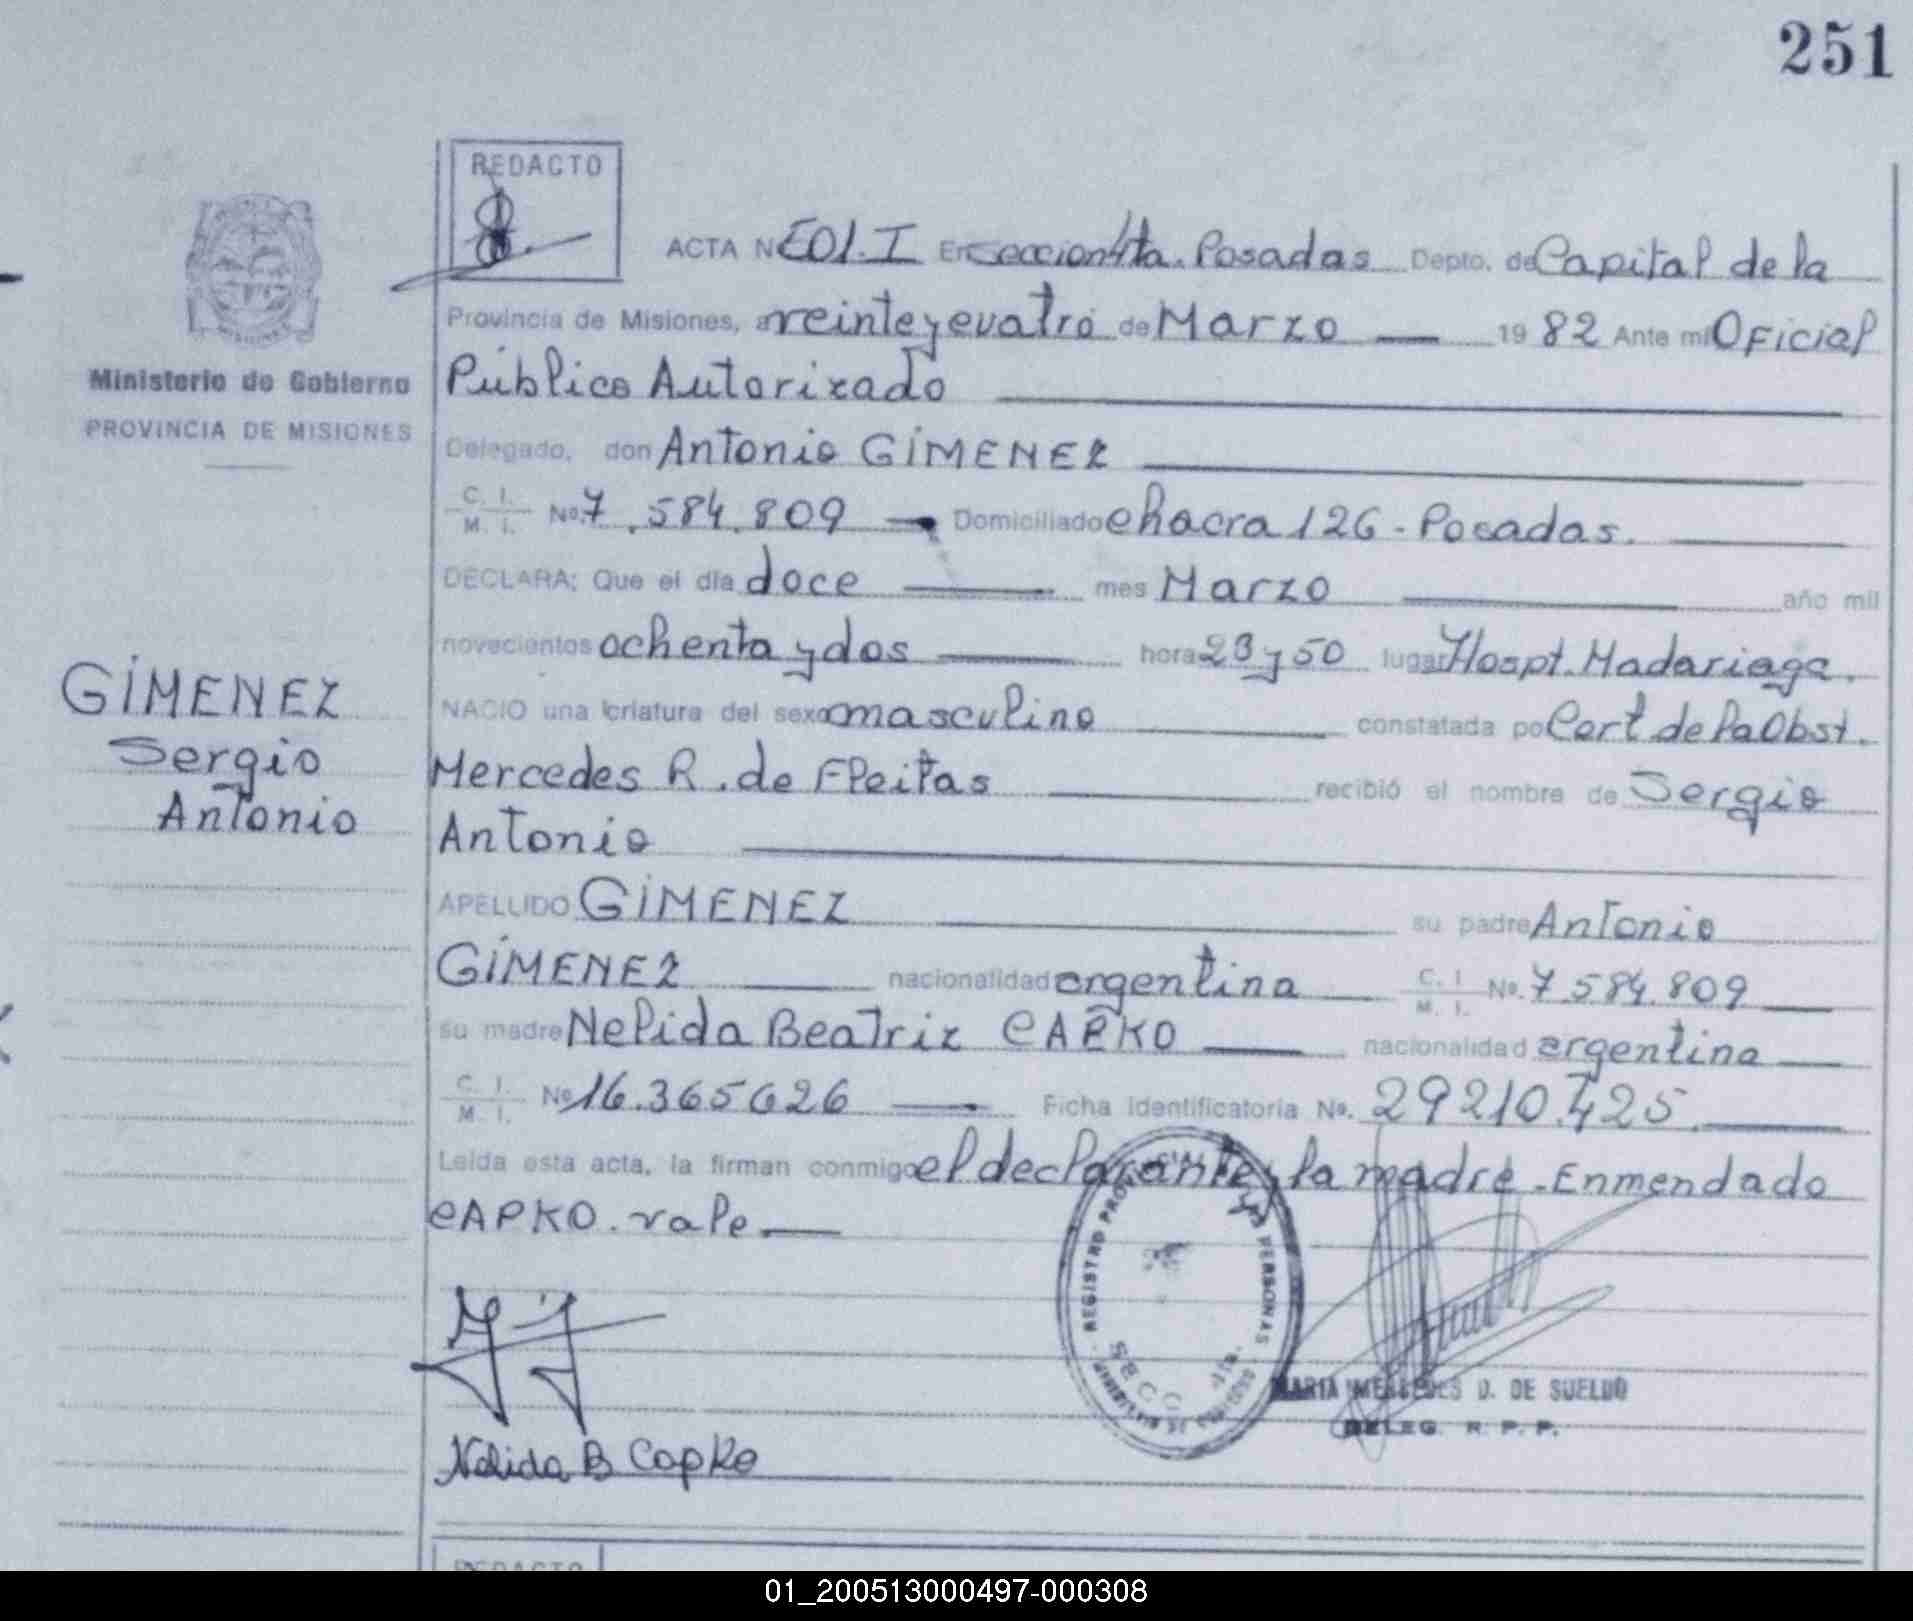 251
REDACTO
ACTA Nº 501.I En seccion 4ta. Posadas Depto. de Capital de la
Provincia de Misiones, a veinte y cuatro de Marzo — 1982 Ante mi Oficial
Ministerio de Gobierno
Público Autorizado
PROVINCIA DE MISIONES
Delegado, don Antonio GIMENEZ
C. I. M. I. Nº 7.584.809 — Domiciliado chacra 126 - Posadas.
DECLARA: Que el día doce — mes Marzo — año mil
novecientos ochenta y dos — hora 23 y 50 lugar Hospt. Madariaga.
GIMENEZ
Sergio
Antonio
NACIO una criatura del sexo masculino — constatada por Cert de la Obst.
Mercedes R. de Fleitas — recibió el nombre de Sergio
Antonio —
APELLIDO GIMENEZ — su padre Antonio
GIMENEZ — nacionalidad argentina — C. I. M. I. Nº. 7.584.809 —
su madre Nelida Beatriz CAPKO — nacionalidad argentina —
C. I. M. I. Nº 16.365626 — Ficha identificatoria Nº. 29210.425. —
Leída esta acta, la firman conmigo el declarante y la madre. Enmendado
CAPKO. vale —
REGISTRO PROVINCIAL DE LAS PERSONAS
SECC 4ta.
MARIA MERCEDES D. DE SUELDO
DELEG. R. P. P.
Nelida B Capko
REDACTO
01_200513000497-000308